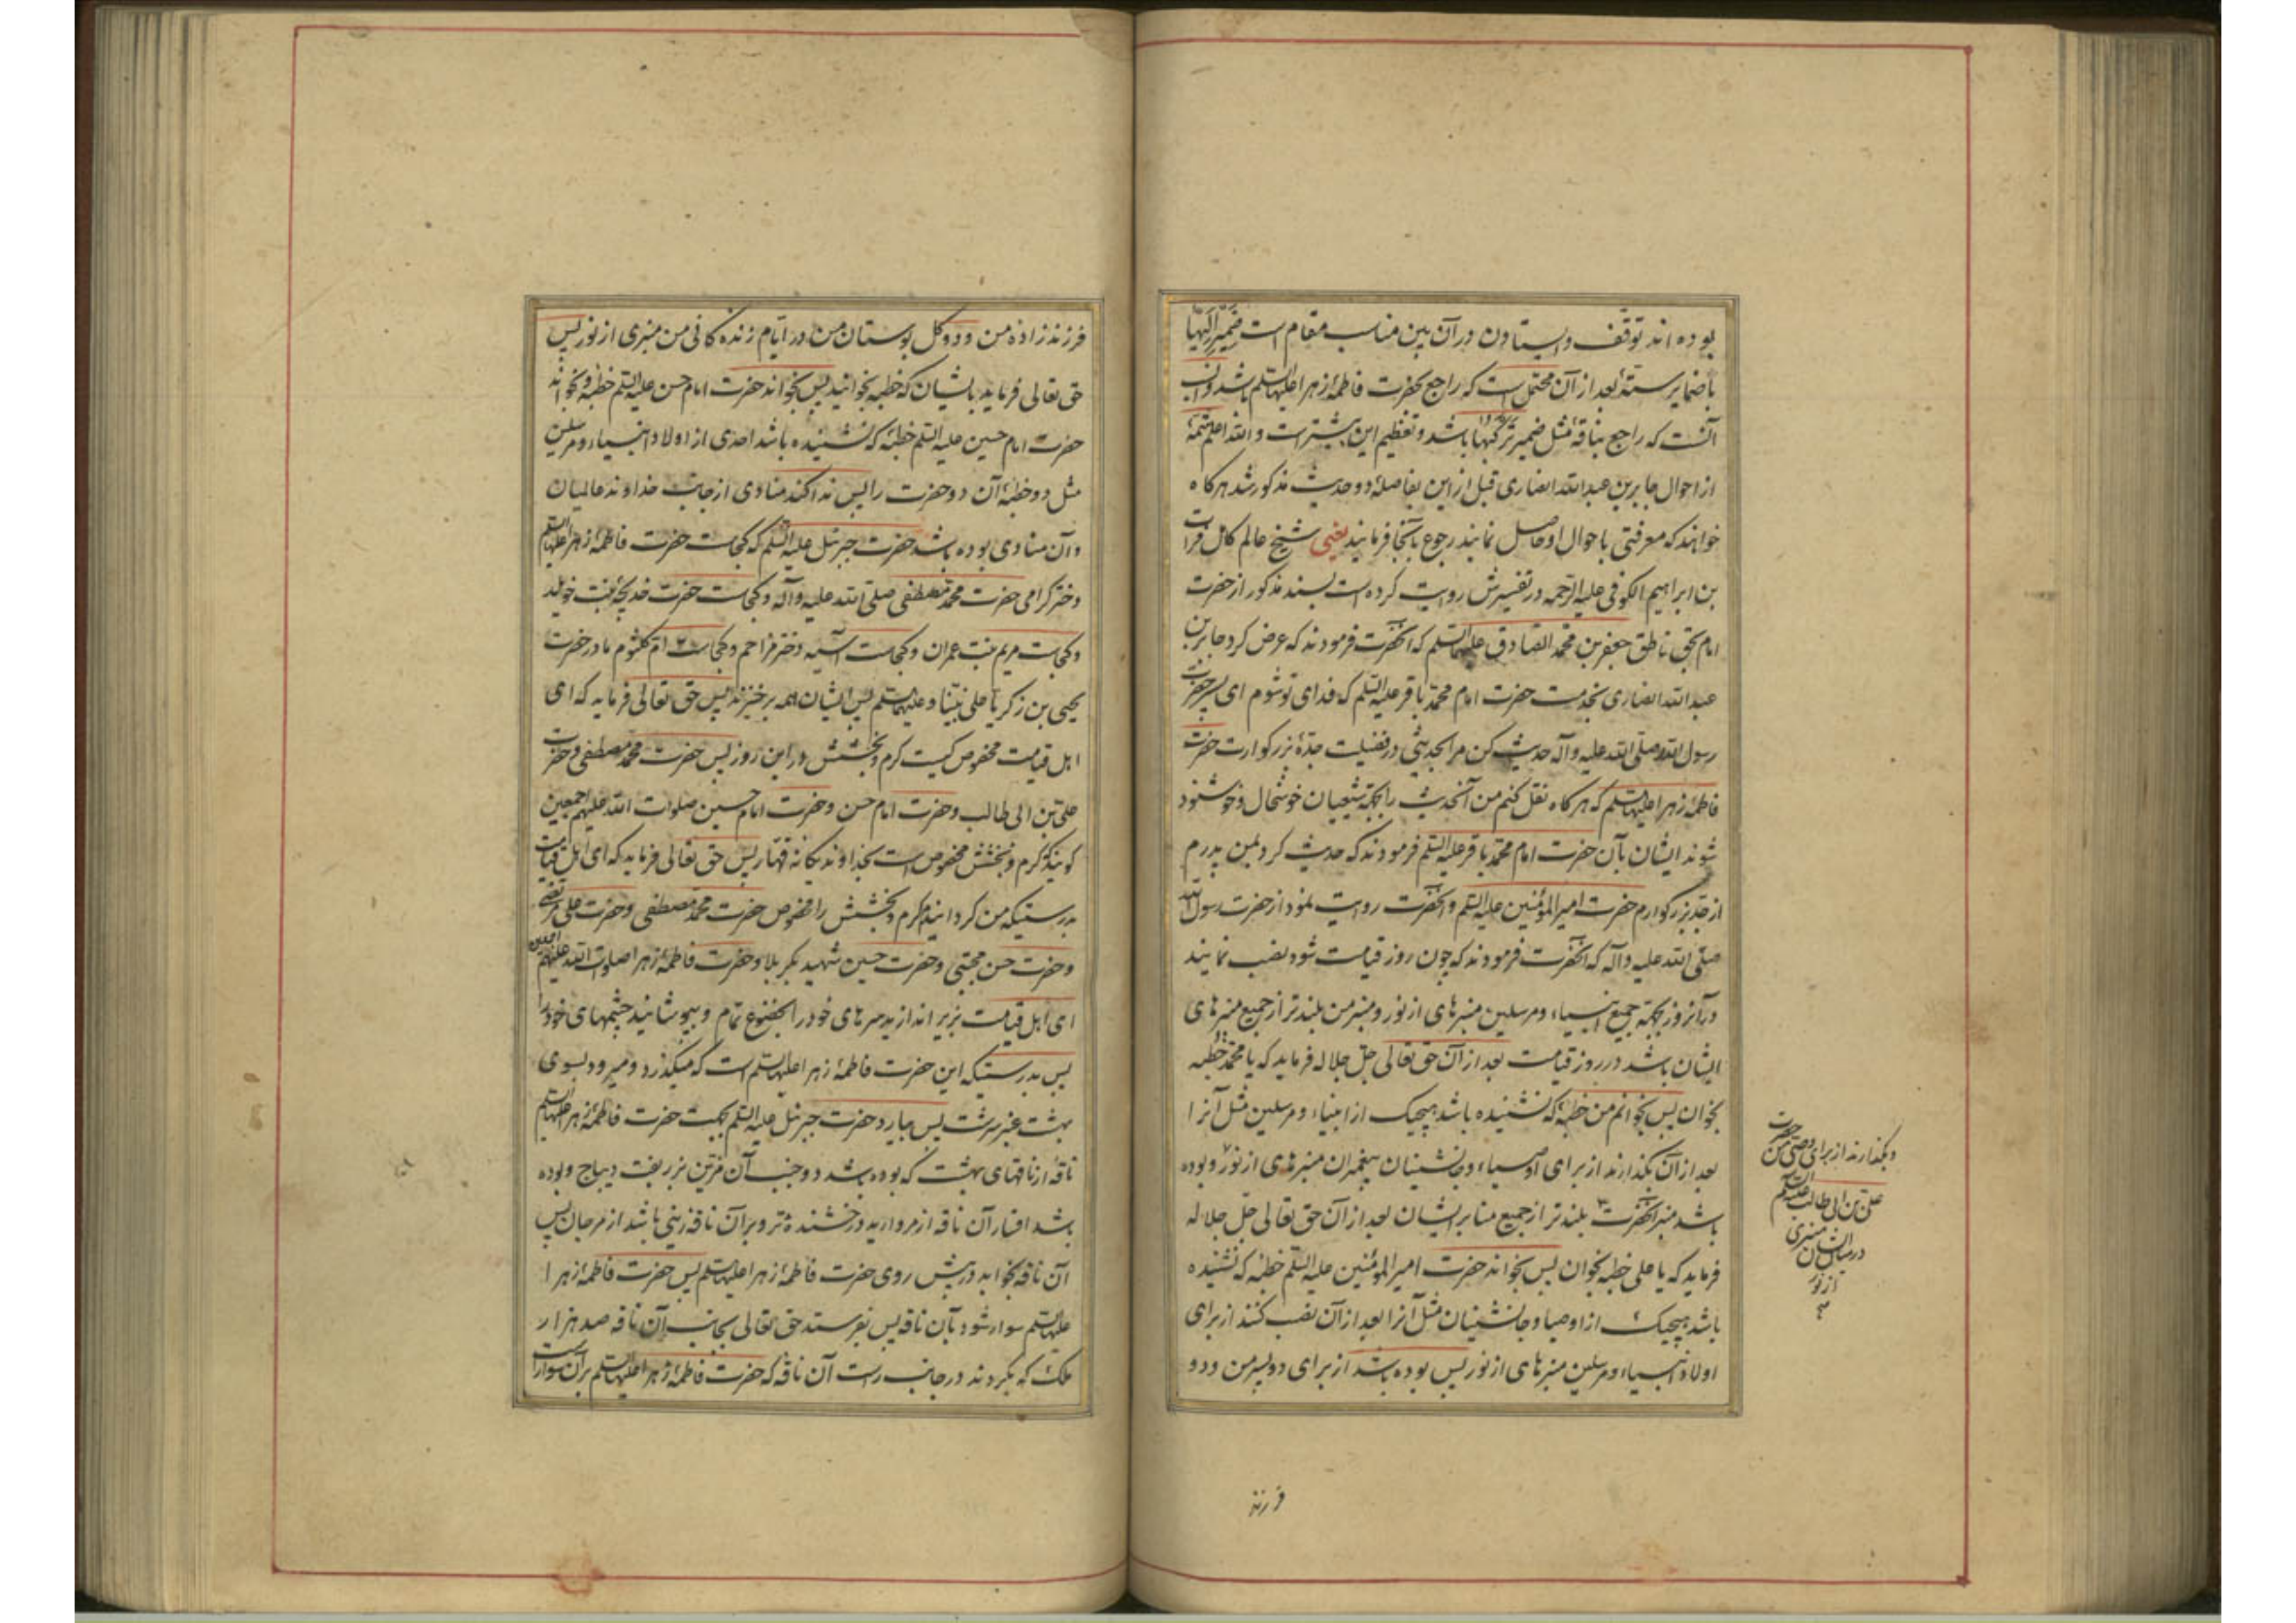 بوده اند توقف و ایستاون در آن بین مناسب مقام است ضمیر الیها
با ضمایر ستّهٔ بعد از آن محتمل است که راجع بحضرت فاطمهٔ زهرا علیها السلم باشد و انسب
آنست که راجع بناقه مثل ضمیر ترکبها باشد و تعظیم این بیشتر است والله اعلم تتمهٔ
از احوال جابر بن عبدالله انصاری قبل از این بفاصلهٔ دو حدیث مذکور شد هرکاه
خواهند که معرفتی باحوال او حاصل نمایند رجوع بآنجا فرمایند یعنی شیخ عالم کامل فرات
بن ابراهیم الکوفی علیه الرحمه در تفسیرش روایت کرده است بسند مذکور از حضرت
امام بحق ناطق جعفر بن محمد الصادق علیهما السلم که آنحضرت فرمودند که عرض کرد جابر بن
عبدالله انصاری بخدمت حضرت امام محمد باقر علیه السلم که فدای تو شوم ای پسر حضرت
رسول الله صلی الله علیه وآله حدیث کن مرا بحدیثی در فضیلت جدّهٔ بزرکوارت حضرت
فاطمهٔ زهرا علیها السلم که هرکاه نقل کنم من آنحدیث را بجهة شیعیان خوشحال و خوشنود
شوند ایشان بآن حضرت امام محمد باقر علیه السلم فرمودند که حدیث کرد بمن پدرم
از جدّ بزرکوارم حضرت امیرالمؤمنین علیه السلم و آنحضرت روایت نمود از حضرت رسول الله
صلی الله علیه وآله که آنحضرت فرمودند که چون روز قیامت شود نصب نمایند
در آنروز بجهة جمیع انبیاء و مرسلین منبرهای از نور و منبر من بلندتر از جمیع منبرهای
ایشان باشد در روز قیامت بعد از آن حق تعالی جل جلاله فرماید که یا محمد خطبه
بخوان پس بخوانم من خطبهٔ که نشنیده باشد هیچیک از انبیاء و مرسلین مثل آنرا
بعد از آن بکذارند از برای اوصیاء و جانشینان پیغمبران منبرهای از نور و بوده
باشد منبر آنحضرت بلندتر از جمیع منابر ایشان بعد از آن حق تعالی جل جلاله
فرماید که یا علی خطبه بخوان پس بخواند حضرت امیرالمؤمنین علیه السلم خطبه که نشنیده
باشد هیچیک از اوصیا و جانشینان مثل آنرا بعد از آن نصب کنند از برای
اولاد انبیاء و مرسلین منبرهای از نور پس بوده باشد از برای دو پسر من و دو
و بکذارند از برای وصی من حضرت
علی بن ابی طالب علیه السلم
در میان ایشان منبری
از نور
فرزند
فرزندزادهٔ من و دو کل بوستان من در ایام زنده کانی من منبری از نور پس
حق تعالی فرماید بایشان که خطبه بخوانید پس بخواند حضرت امام حسن علیه السلم خطبه و بخواند
حضرت امام حسین علیه السلم خطبهٔ که نشنیده باشد احدی از اولاد انبیاء و مرسلین
مثل دو خطبهٔ آن دو حضرت را پس ندا کند منادی از جانب خداوند عالمیان
و آن منادی بوده باشد حضرت جبرئیل علیه السلم که کجاست حضرت فاطمهٔ زهرا علیها السلم
دختر کرامی حضرت محمد مصطفی صلی الله علیه وآله و کجاست حضرت خدیجهٔ بنت خویلد
و کجاست مریم بنت عمران و کجاست آسیه دختر مزاحم و کجاست ام کلثوم مادر حضرت
یحیی بن زکریا علی نبینا و علیهما السلم پس ایشان همه برخیزند پس حق تعالی فرماید که ای
اهل قیامت مخصوص کیست کرم و بخشش در این روز پس حضرت محمد مصطفی و حضرت
علی بن ابی طالب و حضرت امام حسن و حضرت امام حسین صلوات الله علیهم اجمعین
کویند کرم و بخشش مخصوص است بخداوند یکانه قهار پس حق تعالی فرماید که ای اهل قیامت
بدرستیکه من کردانیدم کرم و بخشش را مخصوص حضرت محمد مصطفی و حضرت علی مرتضی
و حضرت حسن مجتبی و حضرت حسین شهید بکربلا و حضرت فاطمهٔ زهرا صلوات الله علیهم اجمعین
ای اهل قیامت بزیر اندازید سرهای خود را بخضوع تمام و بپوشانید چشمهای خود را
پس بدرستیکه این حضرت فاطمهٔ زهرا علیها السلم است که میکذرد و میرود بسوی
بهشت عنبر سرشت پس بیارد حضرت جبرئیل علیه السلم بجهت حضرت فاطمهٔ زهرا علیها السلم
ناقهٔ از ناقهای بهشت که بوده باشد دو جنب آن مزین بزربفت دیباج و بوده
باشد افسار آن ناقه از مروارید درخشنده تر و بر آن ناقه زینی باشد از مرجان پس
آن ناقه بخوابد در پیش روی حضرت فاطمهٔ زهرا علیها السلم پس حضرت فاطمهٔ زهرا
علیها السلم سوار شود بآن ناقه پس بفرستد حق تعالی بجانب آن ناقه صد هزار
ملک که بکردند در جانب راست آن ناقه که حضرت فاطمهٔ زهرا علیها السلم بر آن سوار است